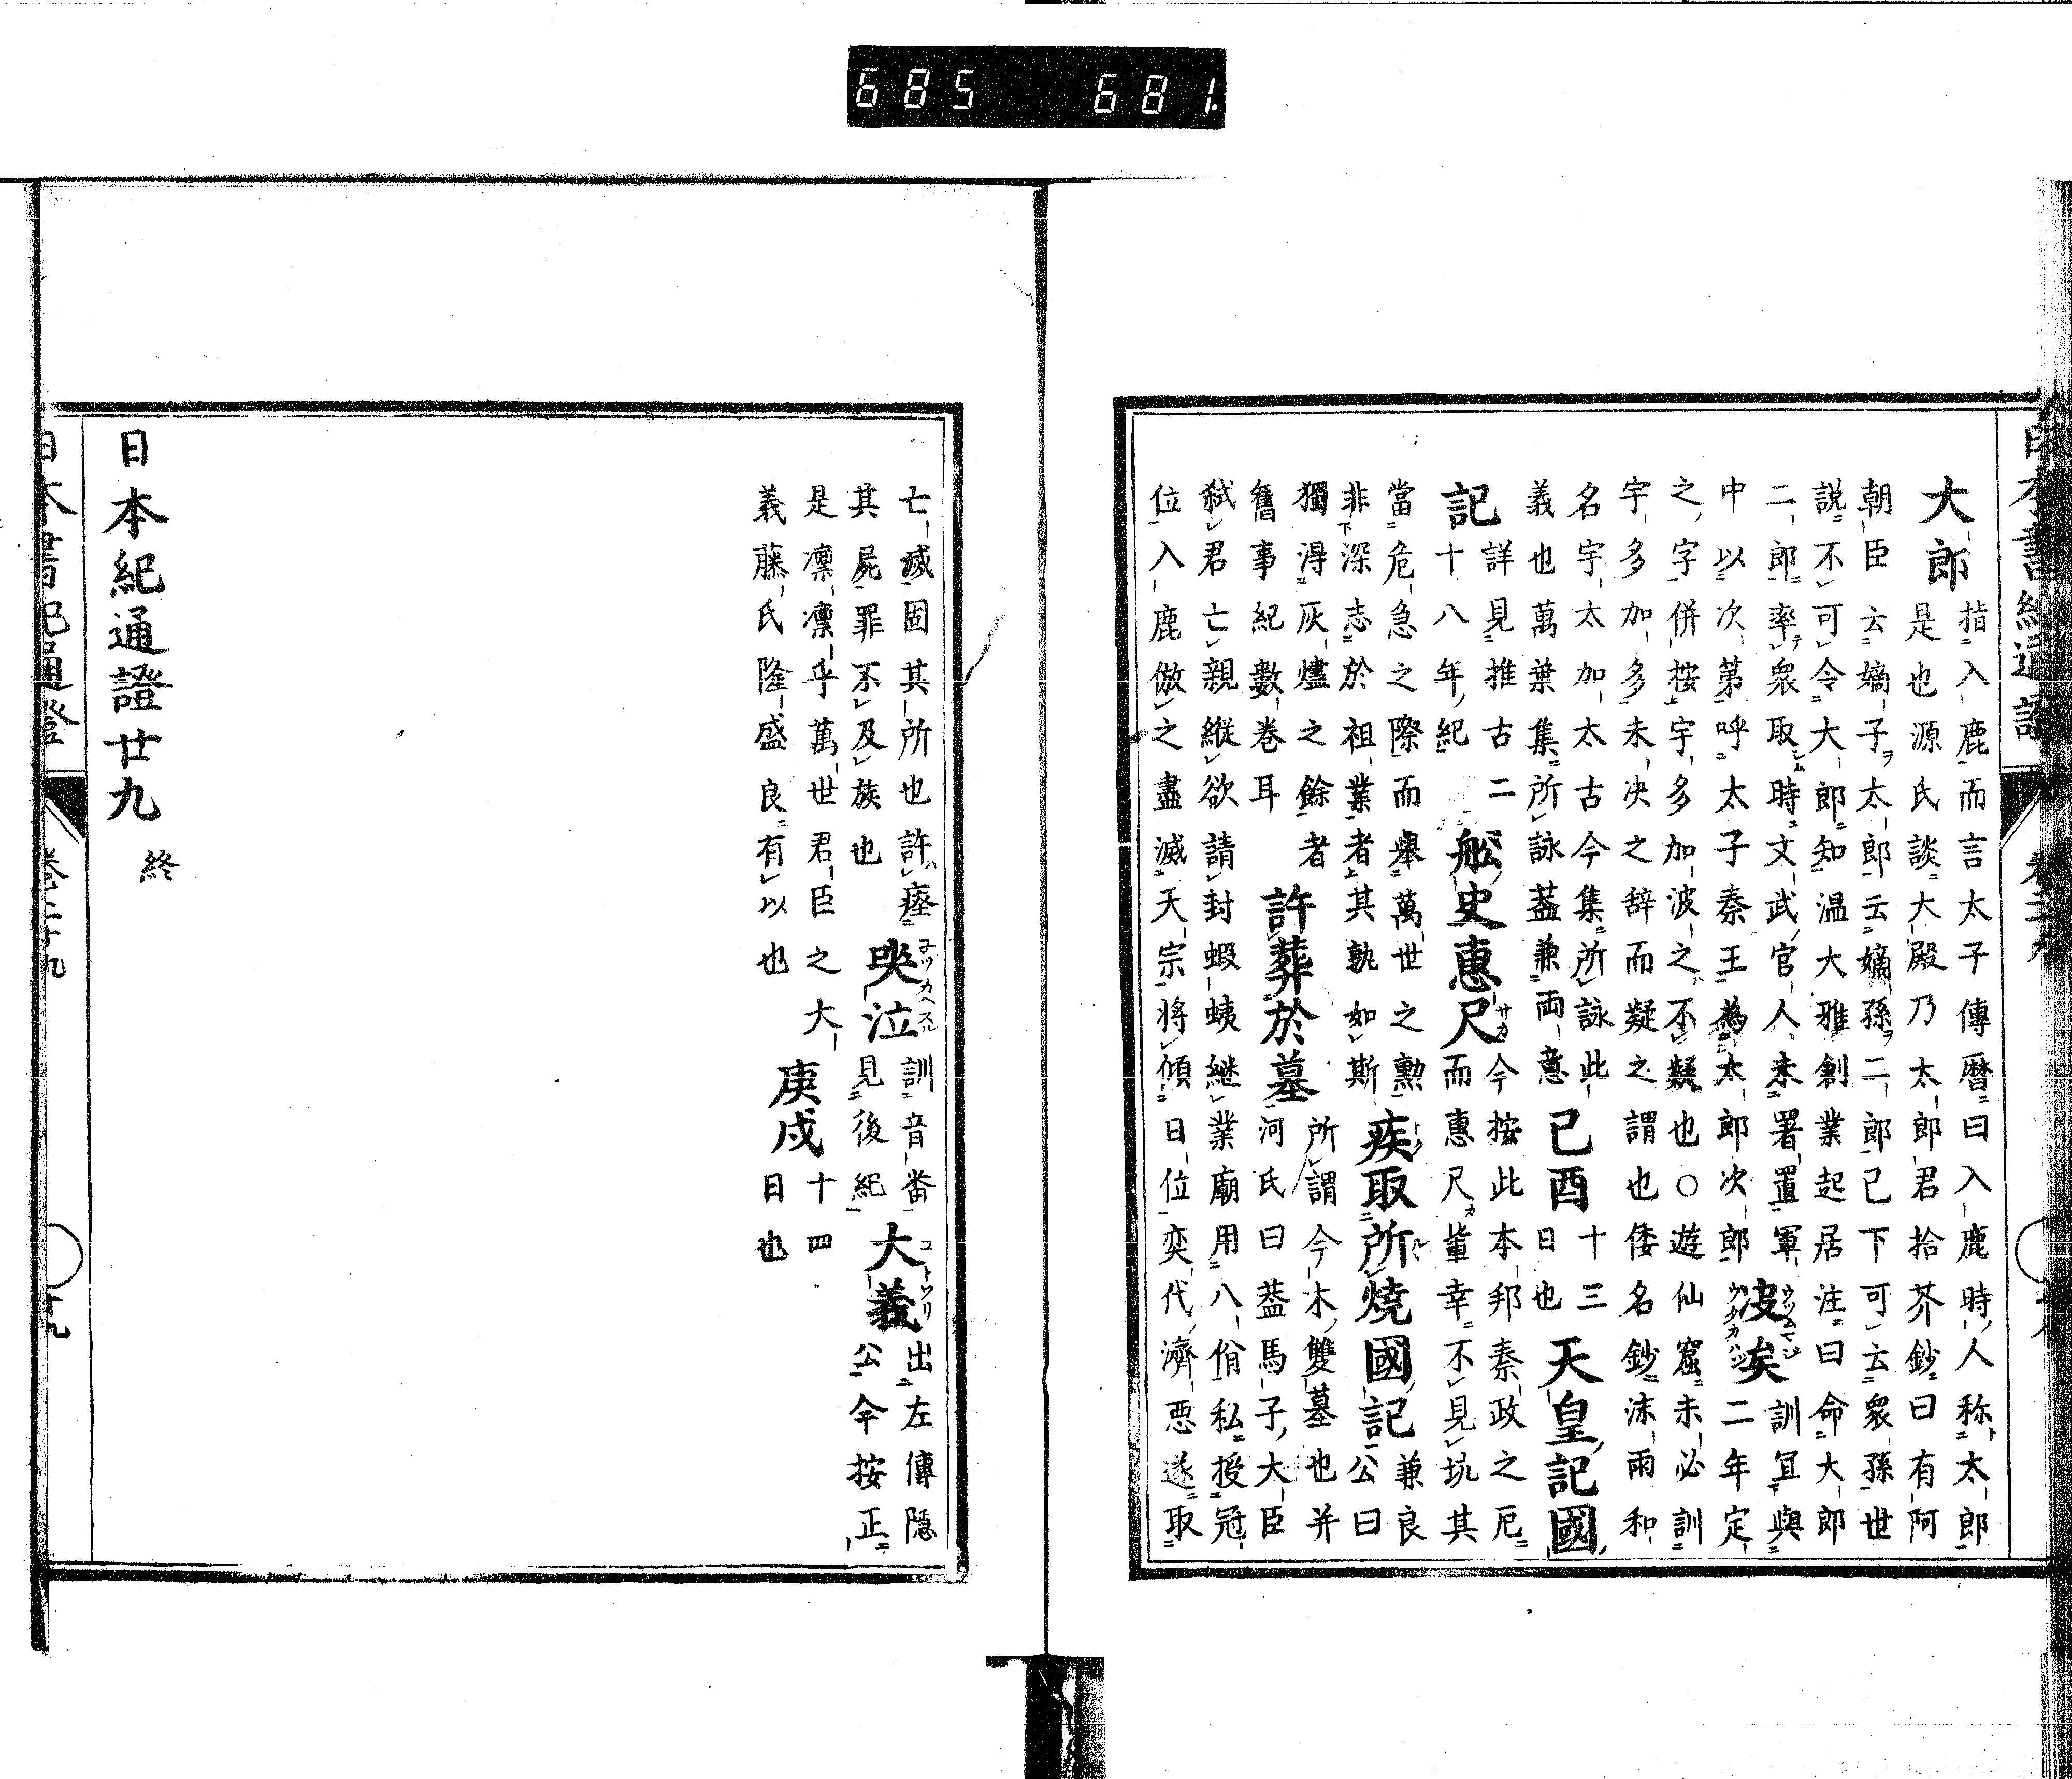 685 681
大郎
指入鹿而言太子傳暦曰入鹿時人称太郎
是也源氏談大殿乃太郎君拾芥鈔曰有阿
朝臣云嫡子太郎云嫡孫二郎已下可云衆孫世
説不可令大郎知温大雅創業起居注曰命大郎
二郎率衆取時文武官人未署置軍
中以次第呼太子秦王為太郎次郎
波矣
訓宜與
二年定
之字併按宇多加波之不凝也○遊仙窟未必訓
宇多加多未决之辞而凝之謂也倭名鈔沫雨和
名宇太加太古今集所詠此
義也萬葉集所詠葢兼両意
己酉
十三
日也
天皇記國
記
詳見推古二
十八年紀
船史惠尺
今按此本邦秦政之厄
而惠尺軰幸不見坑其
當危急之際而舉萬世之勲
非深志於祖業者其孰如斯
疾取所燒國記
兼良
公曰
獨淂灰燼之餘者
舊事紀數巻耳
許葬於墓
所謂今木雙墓也并
河氏曰葢馬子大臣
弑君亡親縦欲請封蝦蛦継業廟用八佾私授冠
位入鹿倣之盡滅天宗将傾日位奕代濟悪遂取
亡滅固其所也許瘞
其屍罪不及族也
哭泣
訓音畨
見後紀
大義
出左傳隠
公今按正
是凛凛乎萬世君臣之大
義藤氏隆盛良有以也
庚戌
十四
日也
日本紀通證廿九 終
日本書紀通證 巻二十九 十九